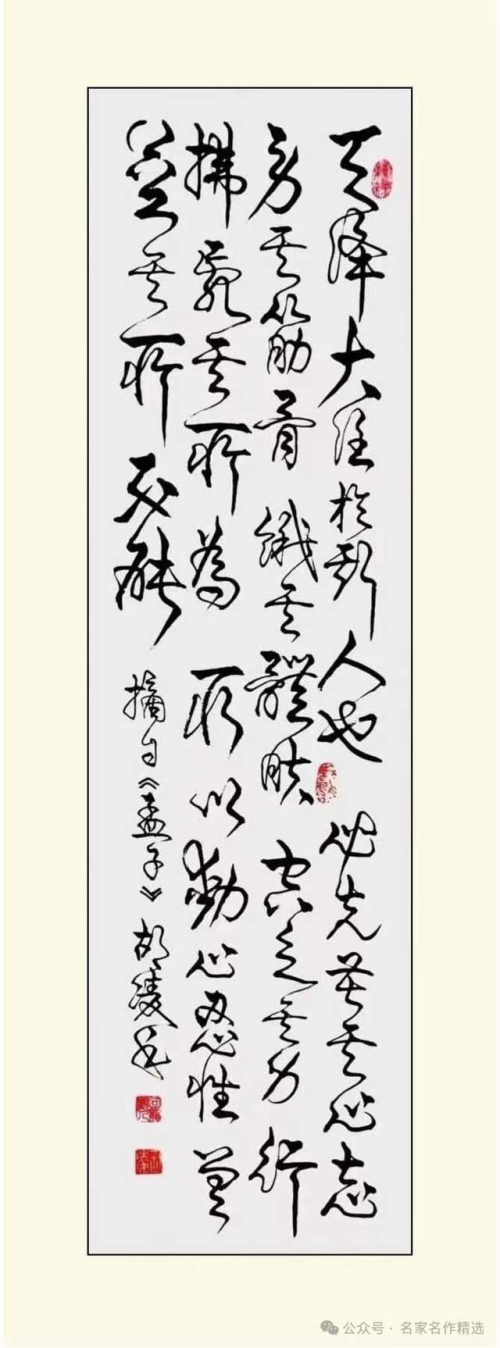 天降大任於斯人也 必先苦其心志
劳其筋骨 餓其體肤 空乏其身 行
拂亂其所為 所以動心忍性 曾
益其所不能
摘自《孟子》胡
公众号 · 名家名作精选